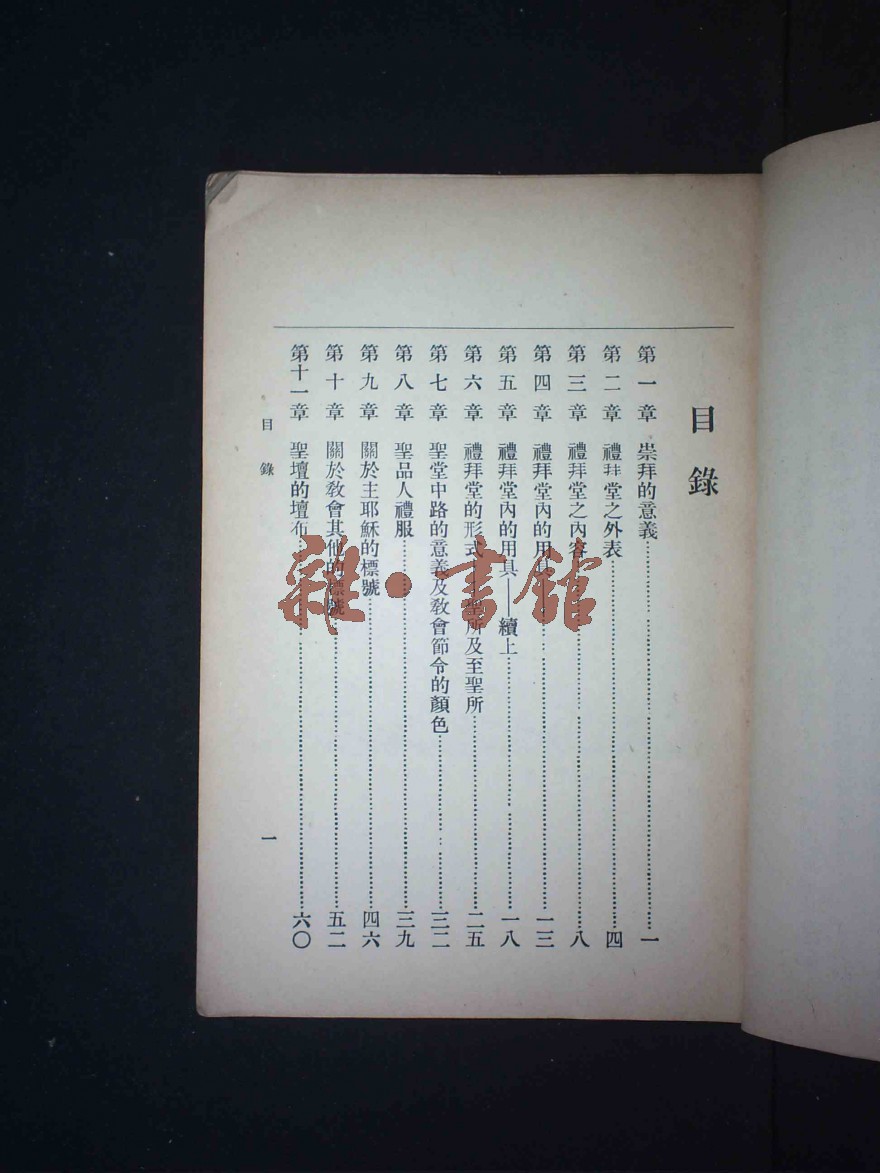 目錄
第一章 崇拜的意義……一
第二章 禮拜堂之外表……四
第三章 禮拜堂之內容……八
第四章 禮拜堂內的用具……一三
第五章 禮拜堂內的用具——續上……一八
第六章 禮拜堂的形式——聖所及至聖所……二五
第七章 聖堂中路的意義及教會節令的顏色……三二
第八章 聖品人禮服……三九
第九章 關於主耶穌的標號……四六
第十章 關於教會其他的標號……五二
第十一章 聖壇的壇布……六〇
目錄 一
雜·書館